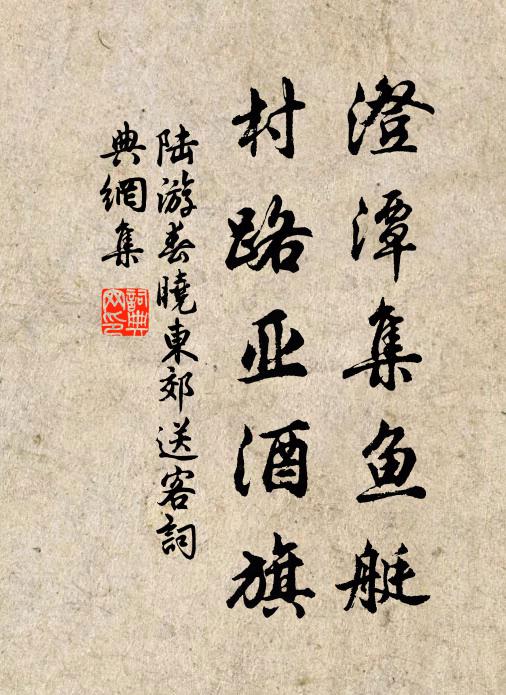 澄潭集鱼艇
村路亚酒旗
陆游春晓东郊送客词
典網集
詞典網印